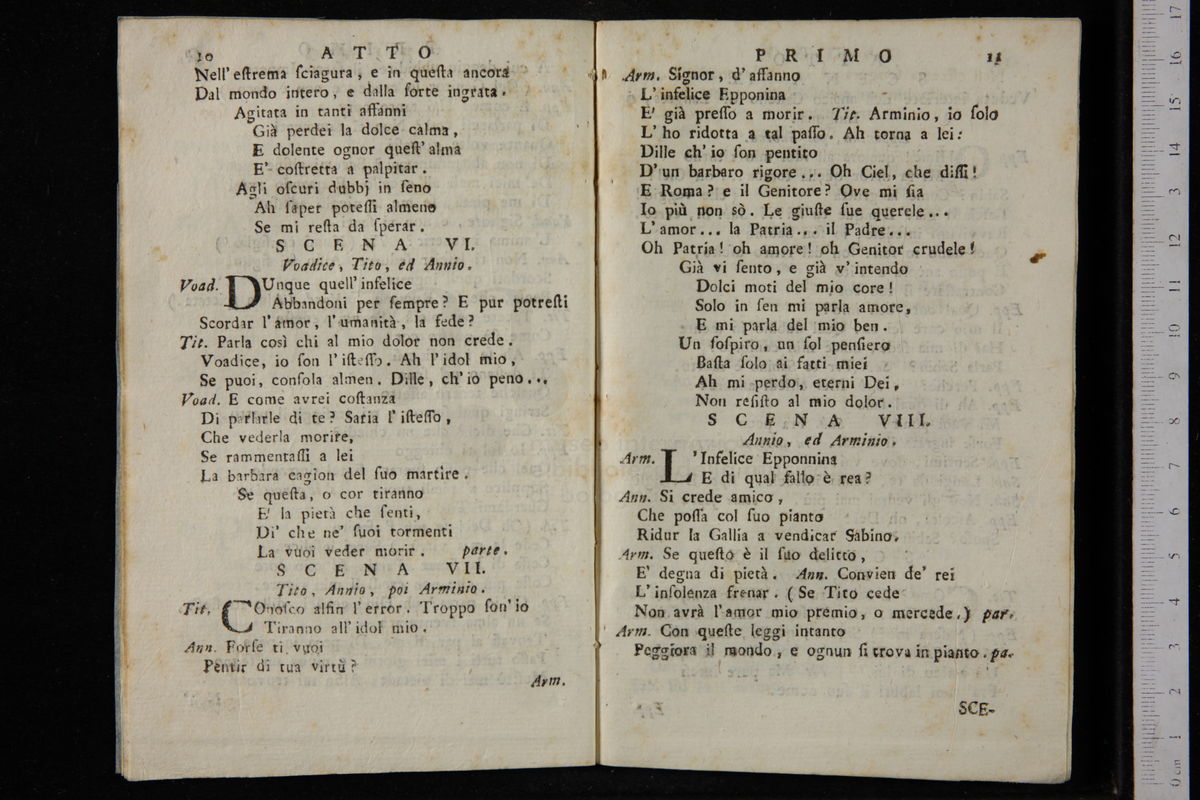 10 ATTO
Nell' eſtrema ſciagura, e in queſta ancora
Dal mondo intero, e dalla ſorte ingrata.
Agitata in tanti affanni
Già perdei la dolce calma,
E dolente ognor queſt' alma
E' coſtretta a palpitar.
Agli oſcuri dubbj in ſeno
Ah ſaper poteſſi almeno
Se mi reſta da ſperar.
SCENA VI.
Voadice, Tito, ed Annio.
Voad. DUnque quell' infelice
Abbandoni per ſempre? E pur potreſti
Scordar l'amor, l'umanità, la fede?
Tit. Parla così chi al mio dolor non crede.
Voadice, io ſon l'iſteſſo. Ah l'idol mio,
Se puoi, conſola almen. Dille, ch' io peno...
Voad. E come avrei coſtanza
Di parlarle di te? Saria l' iſteſſo,
Che vederla morire,
Se rammentaſſi a lei
La barbara cagion del ſuo martire.
Se queſta, o cor tiranno
E' la pietà che ſenti,
Di' che ne' ſuoi tormenti
La vuoi veder morir. parte.
SCENA VII.
Tito, Annio, poi Arminio.
Tit. COnoſco alfin l' error. Troppo ſon' io
Tiranno all' idol mio.
Ann. Forſe ti vuoi
Pentir di tua virtù?
Arm.
PRIMO 11
Arm. Signor, d' affanno
L' infelice Epponina
E' già preſſo a morir. Tit. Arminio, io ſolo
L' ho ridotta a tal paſſo. Ah torna a lei:
Dille ch' io ſon pentito
D' un barbaro rigore... Oh Ciel, che diſſi!
E Roma? e il Genitore? Ove mi ſia
Io più non sò. Le giuſte ſue querele...
L' amor... la Patria... il Padre...
Oh Patria! oh amore! oh Genitor crudele!
Già vi ſento, e già v' intendo
Dolci moti del mio core!
Solo in ſen mi parla amore,
E mi parla del mio ben.
Un ſoſpiro, un ſol penſiero
Baſta ſolo ai fatti miei
Ah mi perdo, eterni Dei,
Non reſiſto al mio dolor.
SCENA VIII.
Annio, ed Arminio.
Arm. L'Infelice Epponnina
E di qual fallo è rea?
Ann. Si crede amico,
Che poſſa col ſuo pianto
Ridur la Gallia a vendicar Sabino.
Arm. Se queſto è il ſuo delitto,
E' degna di pietà. Ann. Convien de' rei
L' inſolenza frenar. (Se Tito cede
Non avrà l'amor mio premio, o mercede.) par.
Arm. Con queſte leggi intanto
Peggiora il mondo, e ognun ſi trova in pianto. pa.
SCE-
0 cm 1 2 3 4 5 6 7 8 9 10 11 12 13 14 15 16 17